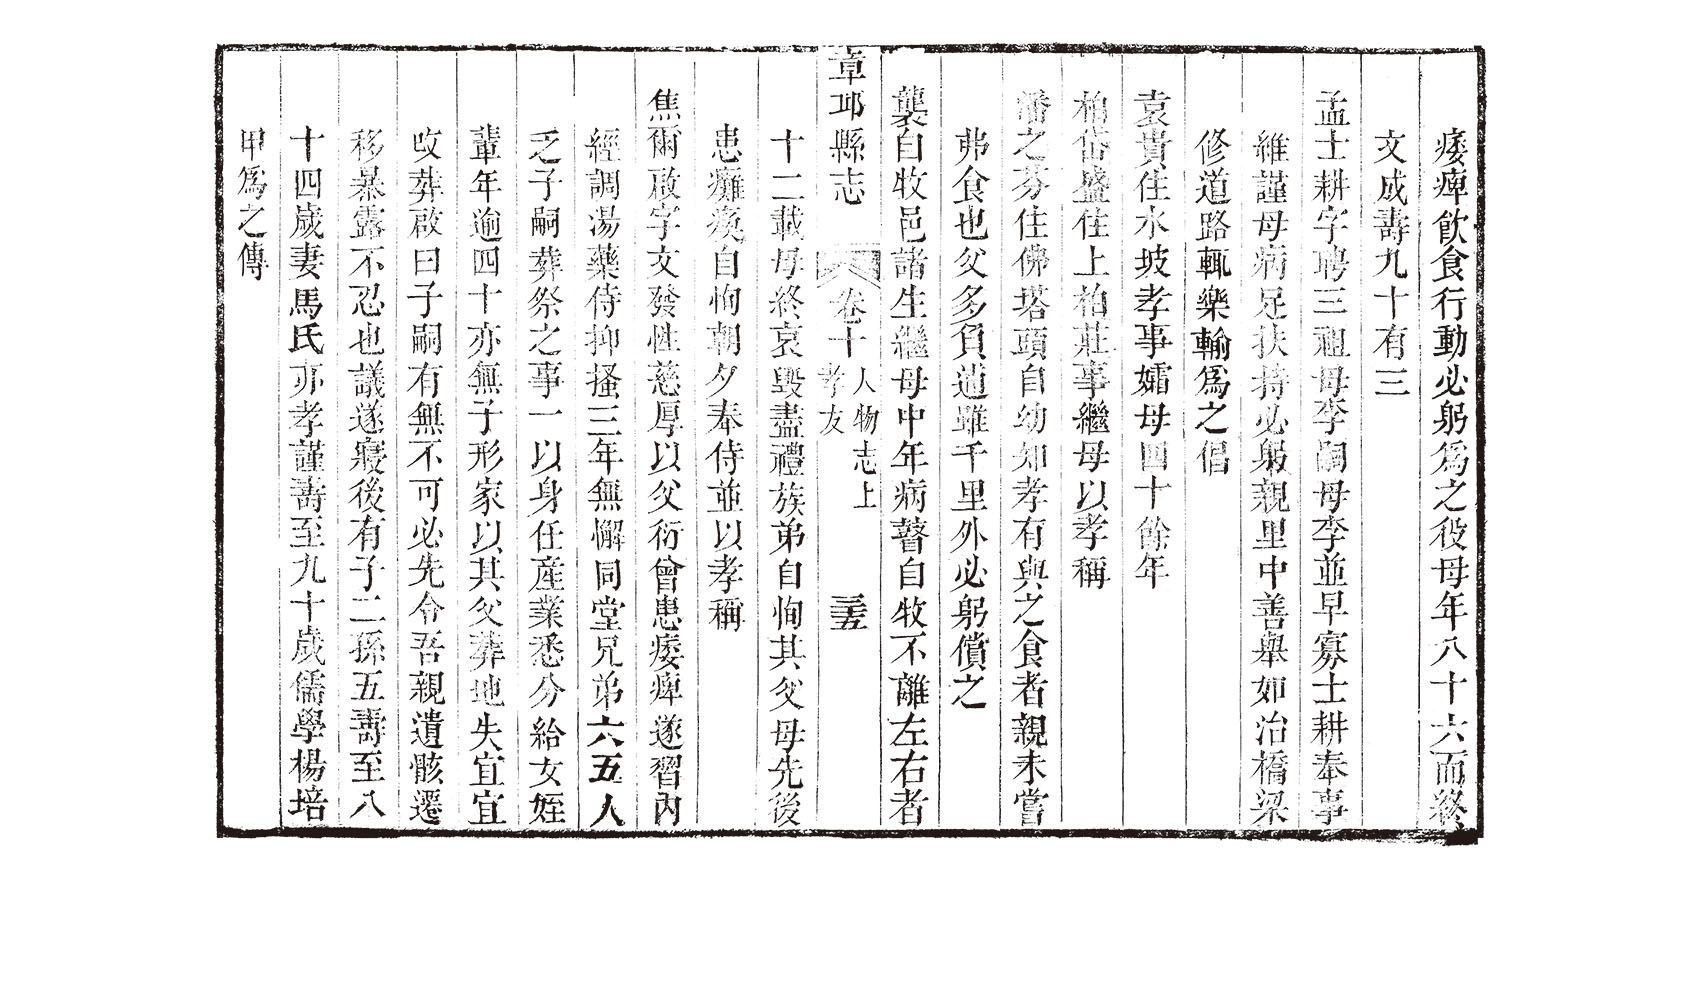 痿痺飲食行動必躬爲之役母年八十六而終
文成壽九十有三
孟士耕字聘三祖母李嗣母李並早寡士耕奉事
維謹母病足扶持必躬親里中善舉如治橋梁
修道路輒樂輸爲之倡
袁貴住水坡孝事孀母四十餘年
柏岱盛住上柏莊事繼母以孝稱
潘之芬住佛塔頭自幼知孝有與之食者親未嘗
弗食也父多負逋雖千里外必躬償之
襲自牧邑諸生繼母中年病瞽自牧不離左右者
章邱縣志
卷十
人物志上
孝友
三五
十二載母終哀毀盡禮族弟自恂其父母先後
患癱瘓自恂朝夕奉侍並以孝稱
焦爾啟字文發性慈厚以父衍曾患痿痺遂習內
經調湯藥侍抑搔三年無懈同堂兄弟六五人
乏子嗣葬祭之事一以身任産業悉分給女姪
輩年逾四十亦無子形家以其父葬地失宜宜
改葬啟曰子嗣有無不可必先令吾親遺骸遷
移暴露不忍也議遂寢後有子二孫五壽至八
十四歲妻馬氏亦孝謹壽至九十歲儒學楊培
甲爲之傳